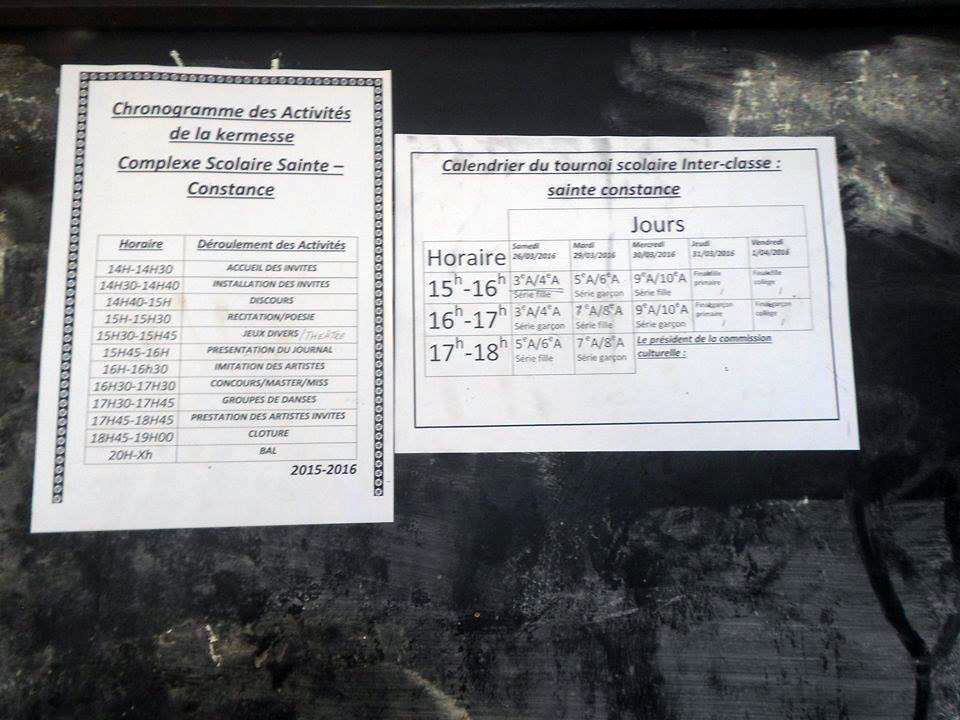 Chronogramme des Activités
de la kermesse
Complexe Scolaire Sainte –
Constance
Horaire Déroulement des Activités
14H-14H30 ACCUEIL DES INVITES
14H30-14H40 INSTALLATION DES INVITES
14H40-15H DISCOURS
15H-15H30 RECITATION/POESIE
15H30-15H45 JEUX DIVERS /THEÂTRE
15H45-16H PRESENTATION DU JOURNAL
16H-16h30 IMITATION DES ARTISTES
16H30-17H30 CONCOURS/MASTER/MISS
17H30-17H45 GROUPES DE DANSES
17H45-18H45 PRESTATION DES ARTISTES INVITES
18H45-19H00 CLOTURE
20H-Xh BAL
2015-2016
Calendrier du tournoi scolaire Inter-classe :
sainte constance
Jours
Horaire Samedi 26/03/2016 Mardi 29/03/2016 Mercredi 30/03/2016 Jeudi 31/03/2016 Vendredi 1/04/2016
15h-16h 3eA/4eA Série fille 5eA/6eA Série garçon 9eA/10eA Série fille Finale fille primaire / Finale fille collège /
16h-17h 3eA/4eA Série garçon 7eA/8eA Série fille 9eA/10eA Série garçon Finale garçon primaire / Finale garçon collège /
17h-18h 5eA/6eA Série fille 7eA/8eA Série garçon
Le président de la commission
culturelle :